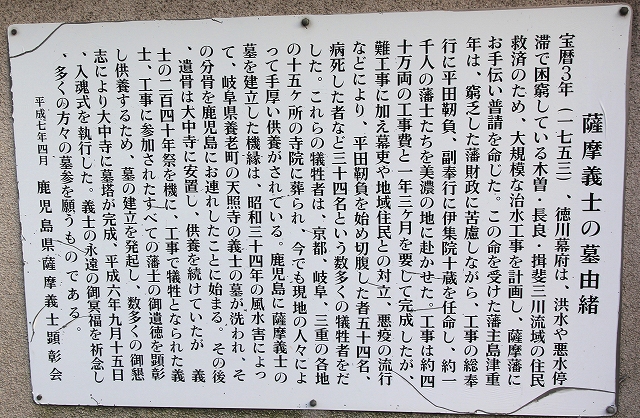 薩摩義士の墓由緒
宝暦3年（一七五三）、徳川幕府は、洪水や悪水停
滞で困窮している木曽・長良・揖斐三川流域の住民
救済のため、大規模な治水工事を計画し、薩摩藩に
お手伝い普請を命じた。この命を受けた藩主島津重
年は、窮乏した藩財政に苦慮しながら、工事の総奉
行に平田靭負、副奉行に伊集院十蔵を任命し、約一
千人の藩士たちを美濃の地に赴かせた。工事は約四
十万両の工事費と一年三ヶ月を要して完成したが、
難工事に加え幕吏や地域住民との対立、悪疫の流行
などにより、平田靭負を始め切腹した者五十四名、
病死した者など三十四名という数多くの犠牲者をだ
した。これらの犠牲者は、京都、岐阜、三重の各地
の十五ヶ所の寺院に葬られ、今でも現地の人々によ
って手厚い供養がされている。鹿児島に薩摩義士の
墓を建立した機縁は、昭和三十四年の風水害によっ
て、岐阜県養老町の天照寺の義士の墓が洗われ、そ
の分骨を鹿児島にお連れしたことに始まる。その後
、遺骨は大中寺に安置し、供養を続けていたが　義
士の二百四十年祭を機に、工事で犠牲となられた義
士、工事に参加されたすべての藩士の御遺徳を顕彰
し供養するため、墓の建立を発起し、数多くの御懇
志により大中寺に墓塔が完成、平成六年九月十五日
、入魂式を執行した。義士の永遠の御冥福を祈念し
、多くの方々の墓参を願うものである。
平成七年四月　鹿児島県薩摩義士顕彰会